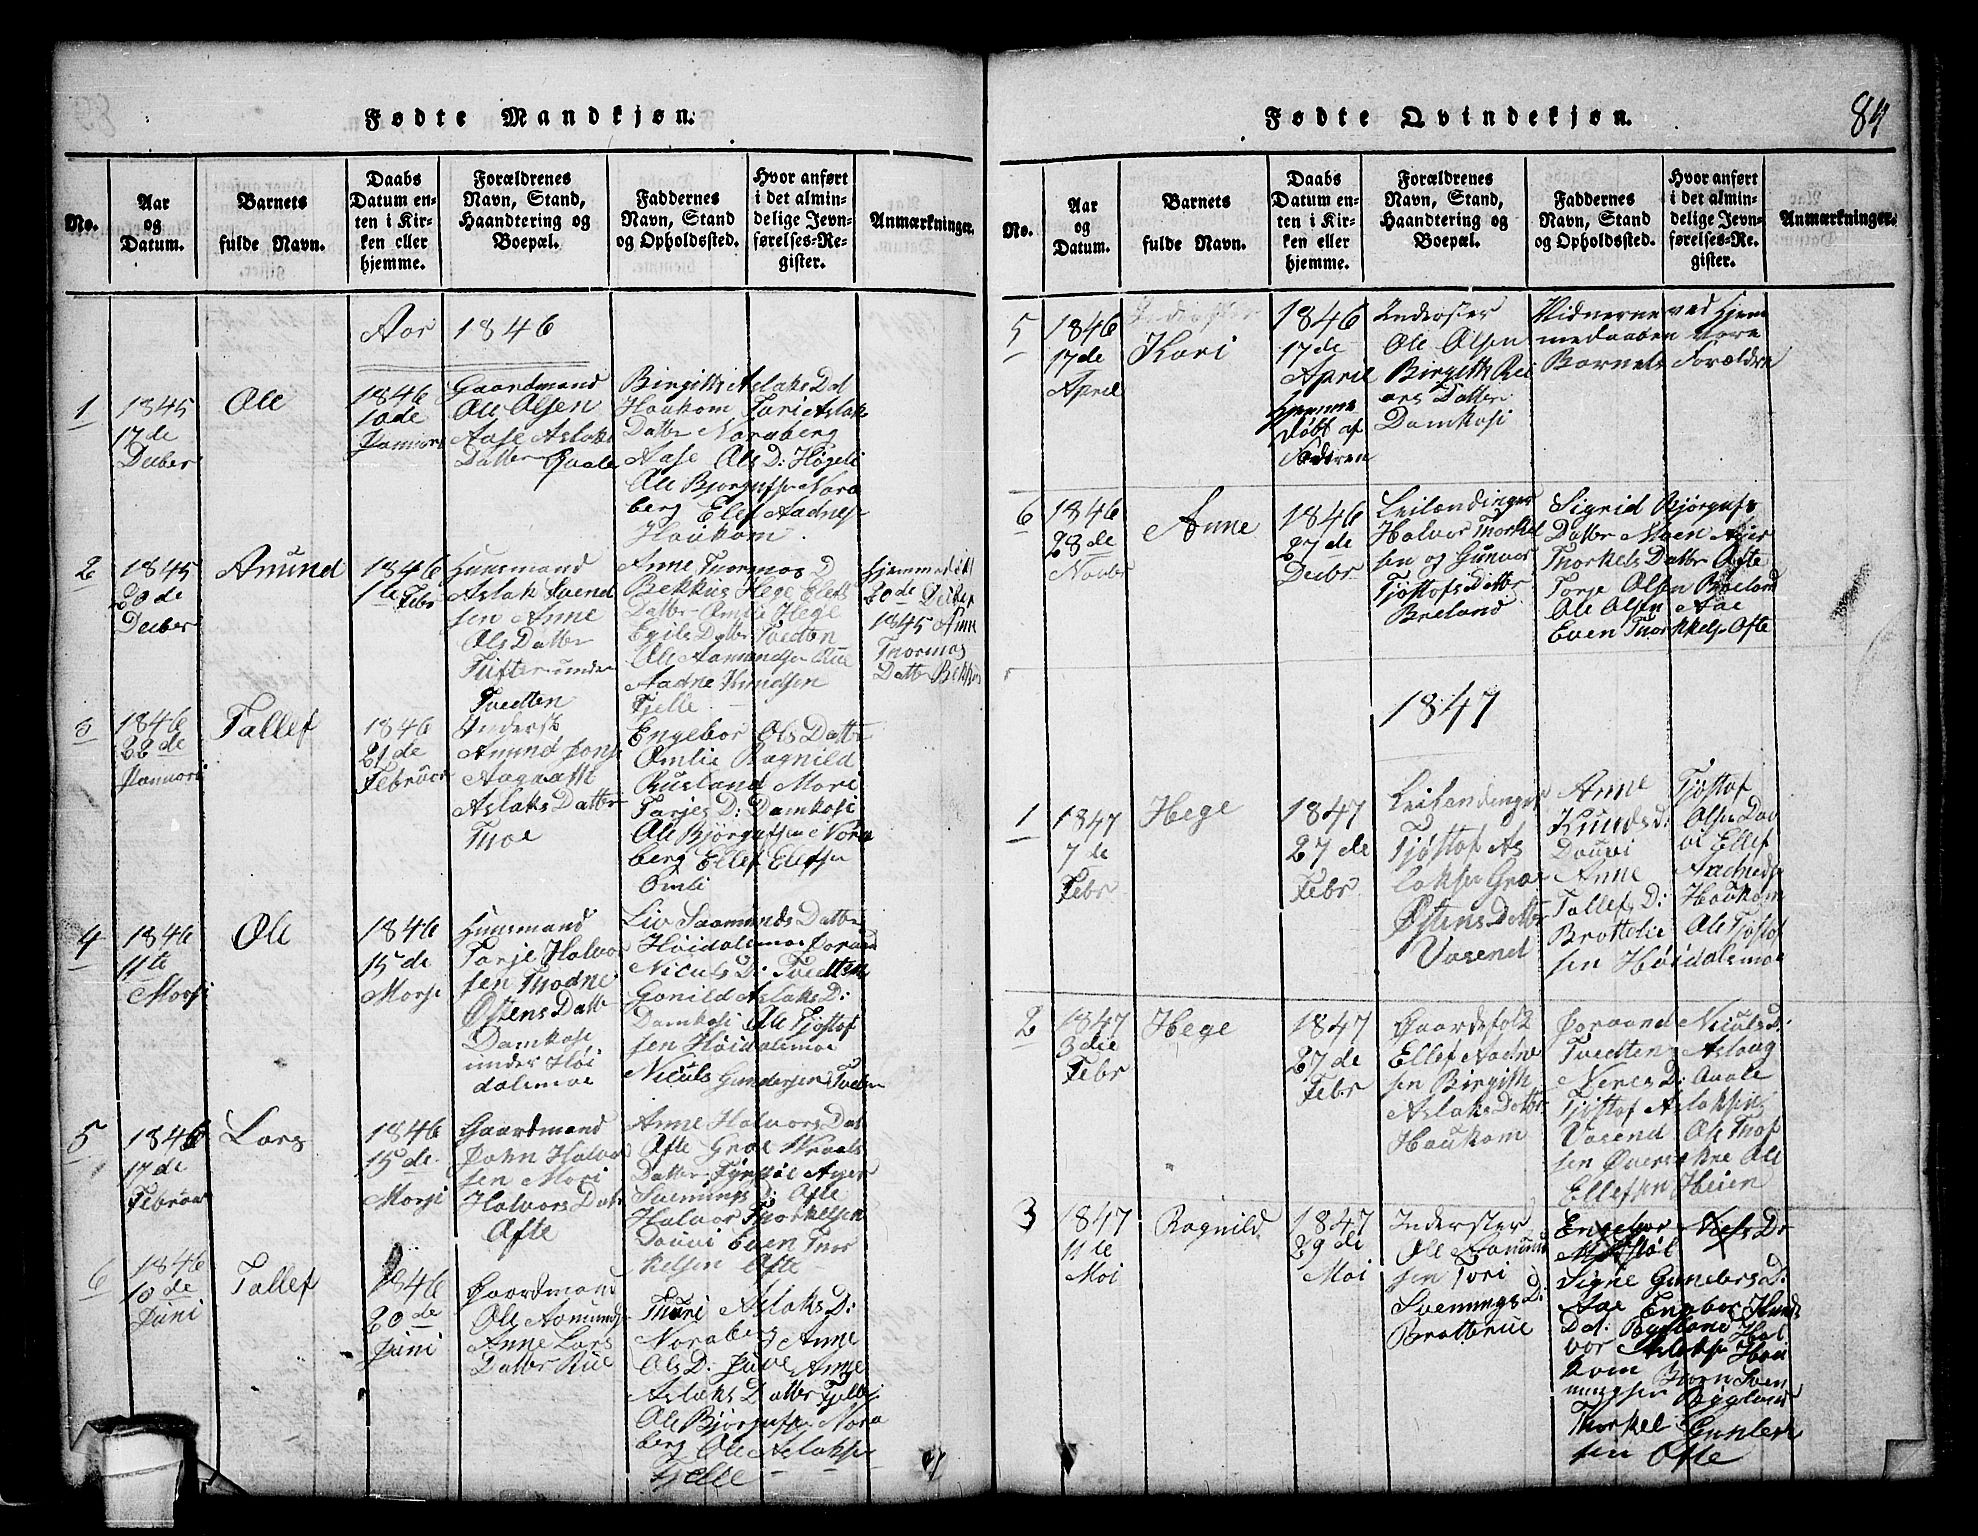 Fødte Mandkjøn.
No.
Aar
og
Datum.
Barnets
fulde Navn.
Daabs
Datum en-
ten i Kir-
ken eller
hjemme.
Forældrenes
Navn, Stand,
Haandtering og
Boepæl.
Faddernes
Navn, Stand
og Opholdssted.
Hvor anført
i det almin-
delige Jevn-
førelses-Re-
gister.
Anmærkninger.
Aar 1846
1
1845
17de
Deeber
Ole
1846
10de
Januari
Gaardmand
Ole Olsen
Aase Aslaks
Datter Quale
Birgitte Aslaks Dat
Haukom Tari Aslak
Datter Noraberg
Aase Ols D: Høgeli
Ole Bjorgufs Nora
berg Elef Aadnes
Haukom
2
1845
20de
Deeber
Amund
1846
1te Febr
Huusmand
Aslak Svend
sen Anne
Ols Datter
Tufter under
Tvedten
Anne Tormos D
Bekkus Hege Elefs
Datter Omli Hege
Egils Datter Tvedten
Ole Aamundsen Rue
Aadne Knudsen
Fjelle
hjemmedøbt
20de Deeber
1845 Anne
Thormos
Datter Bekkus
3
1846
22de
Januari
Tallef
1846
21de
Februar
Inderst
Amund Jons
Aagaatt
Aslaks Datter
Moe
Engebor Ols Datter
Omlie Ragnild
Rusland Mari
Tarjes D: Damkasi
Ole Bjørgufsen Nora
berg Ellef Ellefsen
Omli
4
1846
11te
Marsi
Ole
1846
15de
Marsi
Huusmand
Tarje Halvor
sen Thadne
Østens Datter
Damkase
under Høi
dalsmoe
Liv Saamunds Datter
Høidalsmoe Joraan
Niculs D: Tvedten
Gonild Aslaks D:
Damkasi Ole Tjostof
sen Høidalsmoe
Niculs Gundersen Tveden
5
1846
17de
Februar
Lars
1846
15de
Marsi
Gaardmand
John Halvor
sen Mari
Halvors Dat
Ofte
Anne Halvors Dat
Ofte Groe Wraals
Datter Aager
Svennings D: Ofte
Halvor Thorkelsen
Douvi Even Thor
kelsen Ofte
6
1846
10de
Juni
Tallef
1846
20de
Juni
Gaardmand
Ole Aamunds
Anne Lars
Datter Rue
Thuri Aslaks D:
Noraberg Anne
Ols D: Juve Anne
Aslaks Datter Fjelle
Ole Bjørgufs Nora
berg Ole Aslaks
Fjelle
Fødte Qvindekjøn.
84
No.
Aar
og
Datum.
Barnets
fulde Navn.
Daabs
Datum en-
ten i Kir-
ken eller
hjemme.
Forældrenes
Navn, Stand,
Haandtering og
Boepæl.
Faddernes
Navn, Stand
og Opholdssted.
Hvor anført
i det almin-
delige Jevn-
førelses-Re-
gister.
Anmærkninger.
5
1846
17de
April
Kari
1846
17de
April
Hjemme
døbt af
Faderen
Inderster
Ole Olsen
Birgitte Rei
ars Datter
Damkasi
Vidnerne ved Hjem
medaaben vare
Barnets Forældre
6
1846
28de
Novbr
Anne
1846
27de
Deebr
Leilændinger
Halvor Thorkel
sen og Gunvor
Tjøstofs Datter
Breland
Sigrid Bjørgufs
Datter Moen Aager
Thorkels Datter Ofte
Torje Olsen Breland
Ole Olsen Aae
Even Thorkkels Ofte
1847
1
1847
7de
Febr
Hege
1847
27de
Febr
Leilendinger
Tjøstof As
laksen Groe
Østens Datter
Vasend
Anne Tjøstof
Knuds D: Olsen Dou
Douvi vi Ellef
Anne Aadneds
Tallefs D: Haukom
Brottelie Ole Tjostof
sen Høidalsmoe
2
1847
3die
Febr
Hege
1847
27de
Febr
Gaardsfolk
Ellef Aadne
sen Birgith
Aslaks Datter
Haukom
Joraand Niculs D:
Tvedten Aslaug
Neres D: Quale
Tjøstof Aslaksen
Vasend Ole Thof
sen Øversakre Ole
Ellefsen Heien
3
1847
11te
Mai
Ragnild
1847
29de
Mai
Inderster
Ole Aamund
sen Tori
Svennings D:
Bratterue
Engebor Niels D:
Signe Gunders D:
Aae Engber Knuds
Dat: Bygland Hal
vor Aslaks Hau
kom Bjorn Sven
ningsen Bøgland
Thorkel Gunleik
sen Ofte